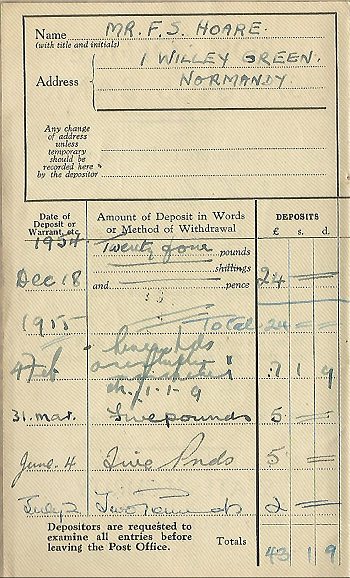 Name MR. F. S. HOARE.
(with title and initials)
1 WILLEY GREEN.
Address NORMANDY.
Any change
of address
unless
temporary
should be
recorded here
by the depositor
Date of Deposit or Warrant, etc. Amount of Deposit in Words or Method of Withdrawal DEPOSITS £ s. d.
1954 Twenty four pounds
shillings
Dec 18 and pence 24
1955 Total 24
4 Feb 7 1 9
31. Mar. Five pounds 5
June. 4 Five Pnds 5
July 2 Two Pounds 2
Depositors are requested to
examine all entries before
leaving the Post Office. Totals 43 1 9